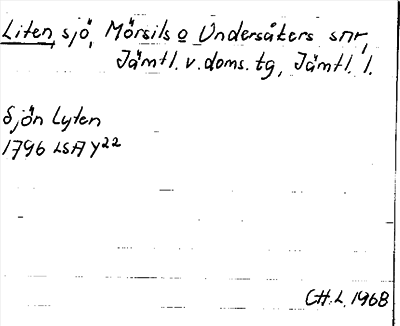 Liten, sjö, Mörsils o Undersåkers snr,
Jämtl. v. doms. tg, Jämtl. l.
Sjön Lyten
1796 LSA Y22
CH. L. 1968